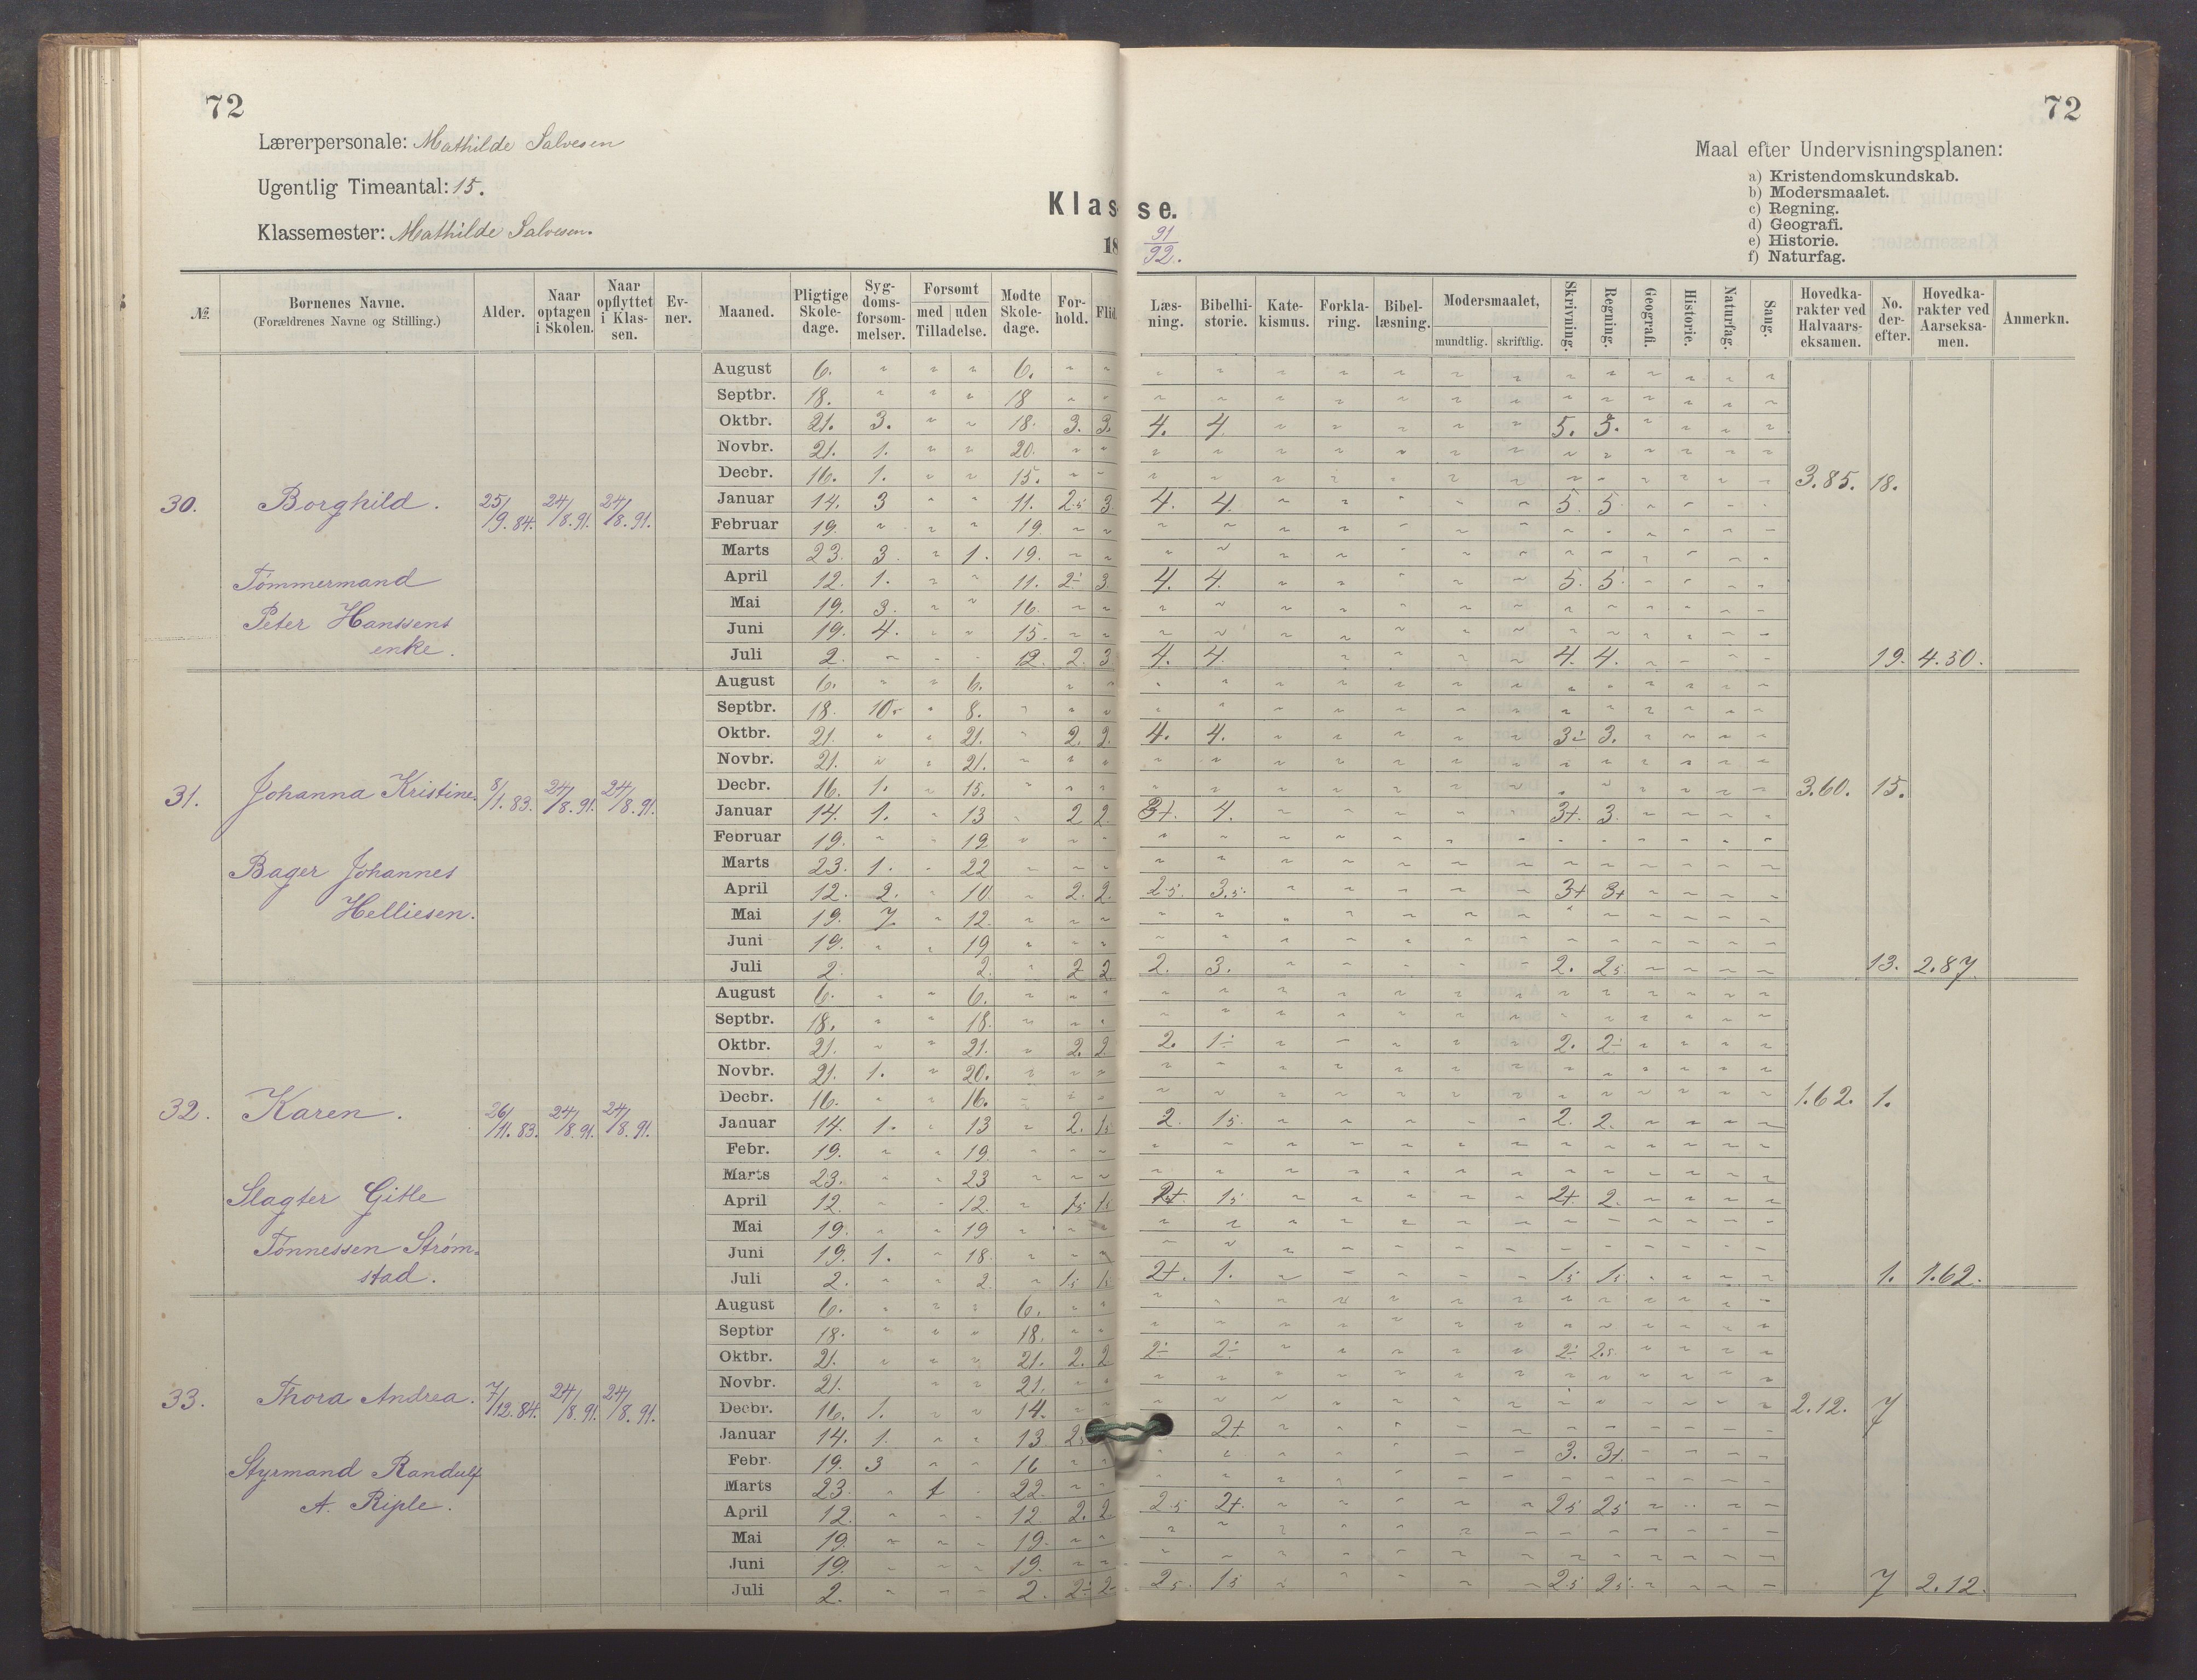 72
72
Lærerpersonale: Mathilde Salvesen
Ugentlig Timeantal: 15.
Klassemester: Mathilde Salvesen.
Klasse.
18 91/92.
Maal efter Undervisningsplanen:
a) Kristendomskundskab.
b) Modersmaalet.
c) Regning.
d) Geografi.
e) Historie.
f) Naturfag.
№. Børnenes Navne. (Forældrenes Navne og Stilling.) Alder. Naar optagen i Skolen. Naar opflyttet i Klassen. Evner. Maaned. Pligtige Skoledage. Sygdomsforsømmelser. Forsømt med uden Tilladelse. Mødte Skoledage. Forhold. Flid. Læsning. Bibelhistorie. Katekismus. Forklaring. Bibellæsning. Modersmaalet, mundtlig. skriftlig. Skrivning. Regning. Geografi. Historie. Naturfag. Sang. Hovedkarakter ved Halvaarseksamen. No. derefter. Hovedkarakter ved Aarseksamen. Anmerkn.
August 6. " " " 6.
Septbr. 18. " " " 18
Oktbr. 21. 3. " " 18. 3. 3. 4. 4 5. 3.
Novbr. 21. 1. " " 20.
Decbr. 16. 1. " " 15. 3.85. 18.
30. Borghild. 25/9.84. 24/8.91. 24/8.91. Januar 14. 3 " " 11. 2.5 3. 4. 4. 5. 5
Februar 19. " " " 19.
Marts 23. 3. " 1. 19.
Tømmermand April 12. 1. " " 11. 2÷ 3 4. 4. 5. 5.
Peter Hanssens Mai 19. 3. " " 16.
Juni 19. 4. " " 15.
enke. Juli 2. " " " 2. 2. 3 4. 4. 4. 4. 19. 4.30.
August 6. " " 6.
Septbr. 18. 10. " 8.
Oktbr. 21. " " 21. " 2. 2. 4. 4. 3÷ 3.
Novbr. 21. " " 21.
31. Johanna Kristine. 8/1.83. 24/8.91. 24/8.91. Decbr. 16. 1. " 15. 3.60. 15.
Januar 14. 1. " 13 " 2 2. 3+. 4. 3+. 3.
Februar 19. " " 19
Bager Johannes Marts 23. 1. " 22
April 12. 2. " 10 " 2. 2. 2.5. 3.5. 3+ 3+
Helliesen. Mai 19. 7 " 12.
Juni 19. " " 19
Juli 2. 2. " 2 2 2. 3. 2. 2.5 13. 2.87.
August 6. " " 6.
Septbr. 18. " " 18.
Oktbr. 21. " " 21. " 2. 2 2. 1÷ 2. 2÷
Novbr. 21. 1. " 20.
Decbr. 16. " " 16. 1.62. 1.
32. Karen. 26/11.83. 24/8.91. 24/8.91. Januar 14. 1. " 13 " 2. 1.5 2. 1.5. 2. 2.
Febr. 19. " " 19
Marts 23. " " 23
Slagter Gitle April 12. " " 12. " 1.5 1.5 2+. 1.5 2+. 2.
Mai 19. " " 19
Tønnessen Strøm= Juni 19. 1. " 18.
stad. Juli 2. " " 2 " 1.5 1.5 2+. 1. 1.5 1.5 1. 1.62.
August 6. " " " 6.
Septbr 18. " " " 18.
Oktbr. 21. " " " 21. 2. 2 2÷ 2÷ 2÷ 2.5.
Novbr. 21. " " 21.
33. Thora Andrea. 7/12.84. 24/8.91. 24/8.91. Decbr. 16. 1. " " 14. 2.12. 7
Januar 14. 1. " " 13 2.5 2+
Styrmand Randulf Febr. 19. 3 " " 16 3. 3+.
A. Riple. Marts 23. " 1 " 22.
April 12. " " " 12 2. 2 2.5 2+. 2.5 2.5
Mai 19. " " " 19.
Juni 19. " " " 19.
Juli 2. " " " 2. 2÷ 2÷ 2.5. 1.5 2.5 2.5. 7 2.12.